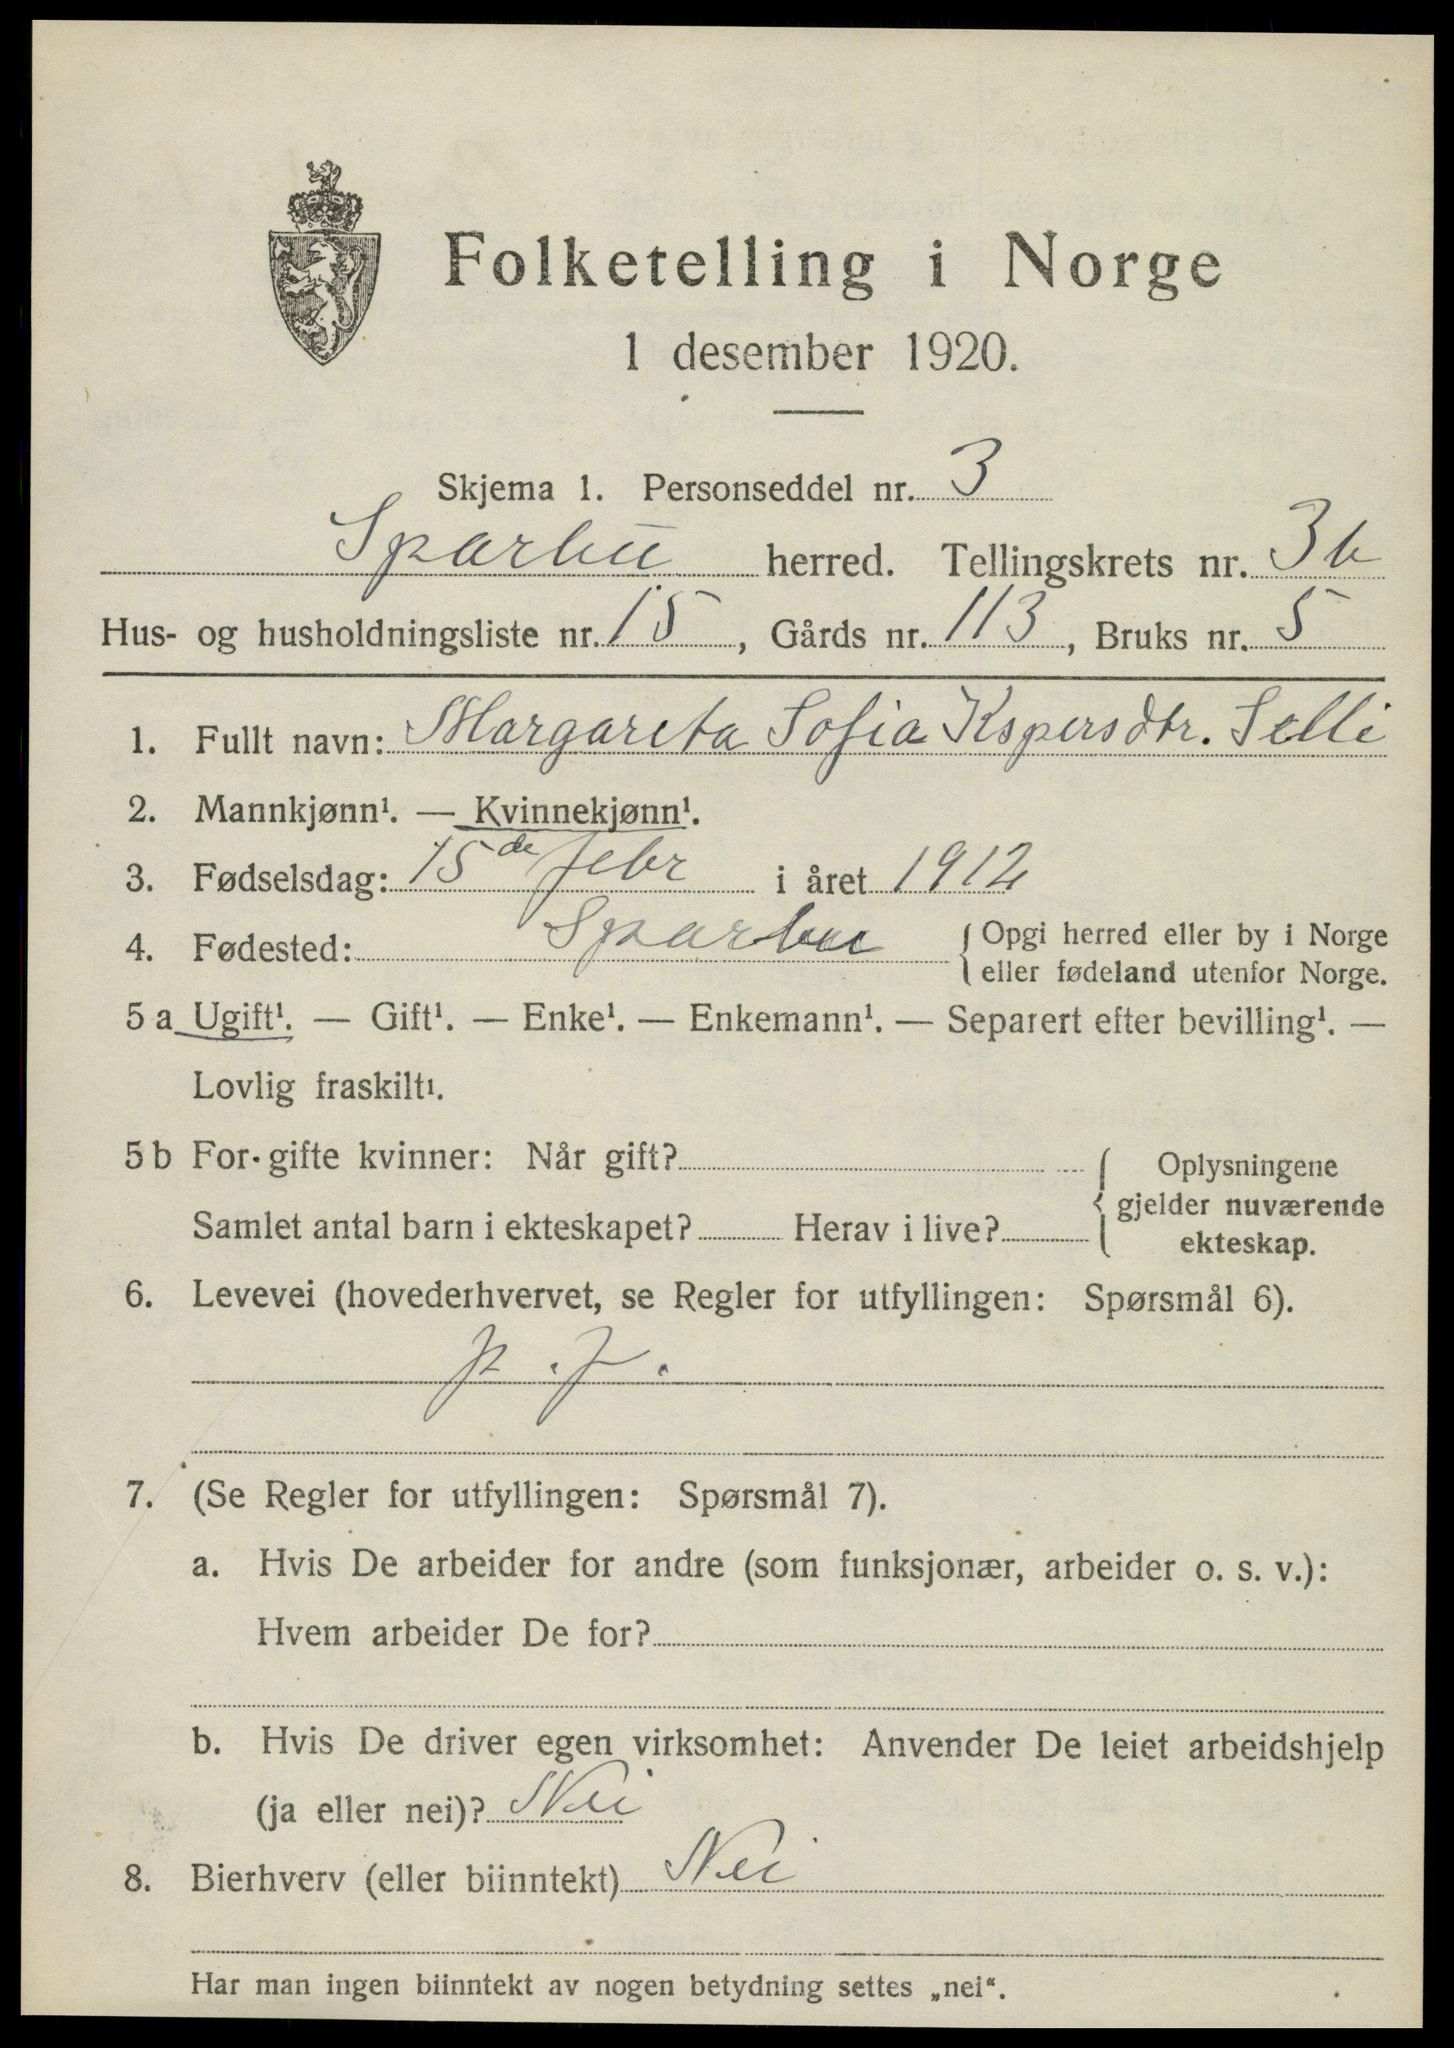 Folketelling i Norge
1 desember 1920.
Skjema 1. Personseddel nr. 3
Sparbu herred. Tellingskrets nr. 3b
Hus- og husholdningsliste nr. 15, Gårds nr. 113, Bruks nr. 5
1. Fullt navn: Margareta Sofia Kspersdtr. Selli
2. Mannkjønn¹. — Kvinnekjønn¹.
3. Fødselsdag: 15de febr i året 1912
4. Fødested: Sparbu { Opgi herred eller by i Norge
eller fødeland utenfor Norge.
5 a Ugift¹. — Gift¹. — Enke¹. — Enkemann¹. — Separert efter bevilling¹. —
Lovlig fraskilt¹.
5 b For gifte kvinner: Når gift? { Oplysningene
gjelder nuværende
Samlet antal barn i ekteskapet? Herav i live?
ekteskap.
6. Levevei (hovederhvervet, se Regler for utfyllingen: Spørsmål 6).
p. f.
7. (Se Regler for utfyllingen: Spørsmål 7).
a. Hvis De arbeider for andre (som funksjonær, arbeider o. s. v.):
Hvem arbeider De for?
b. Hvis De driver egen virksomhet: Anvender De leiet arbeidshjelp
(ja eller nei)? Nei
8. Bierhverv (eller biinntekt) Nei
Har man ingen biinntekt av nogen betydning settes „nei“.